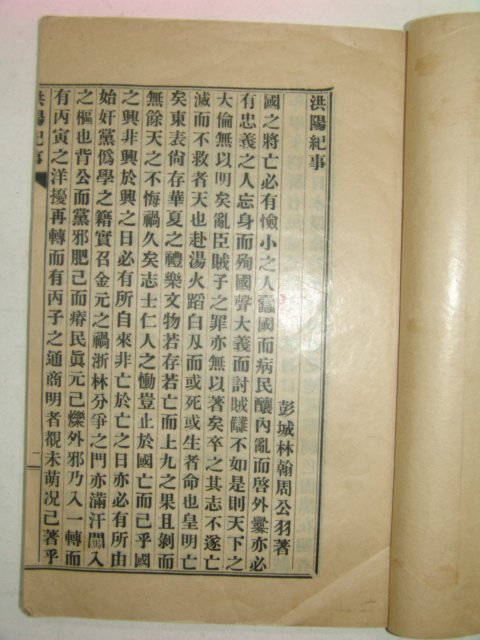 洪陽紀事
彭城林翰周公羽著
國之將亡必有憸小之人蠹國而病民釀內亂而啓外釁亦必
有忠義之人忘身而殉國聲大義而討賊讎不如是則天下之
大倫無以明矣亂臣賊子之罪亦無以著矣卒之其志不遂亡
滅而不救者天也赴湯火蹈白刃而或死或生者命也皇明亡
矣東表尙存華夏之禮樂文物若存若亡而上九之果且剝而
無餘天之不悔禍久矣志士仁人之慟豈止於國亡而已乎國
之興非興於興之日必有所自來非亡於亡之日亦必有所由
始奸黨僞學之籍實召金元之禍浙林分爭之門亦滿汗闖入
之樞也背公而黨邪肥己而瘠民眞元已爍外邪乃入一轉而
有丙寅之洋擾再轉而有丙子之通商明者覩未萌况已著乎
洪陽紀事
二